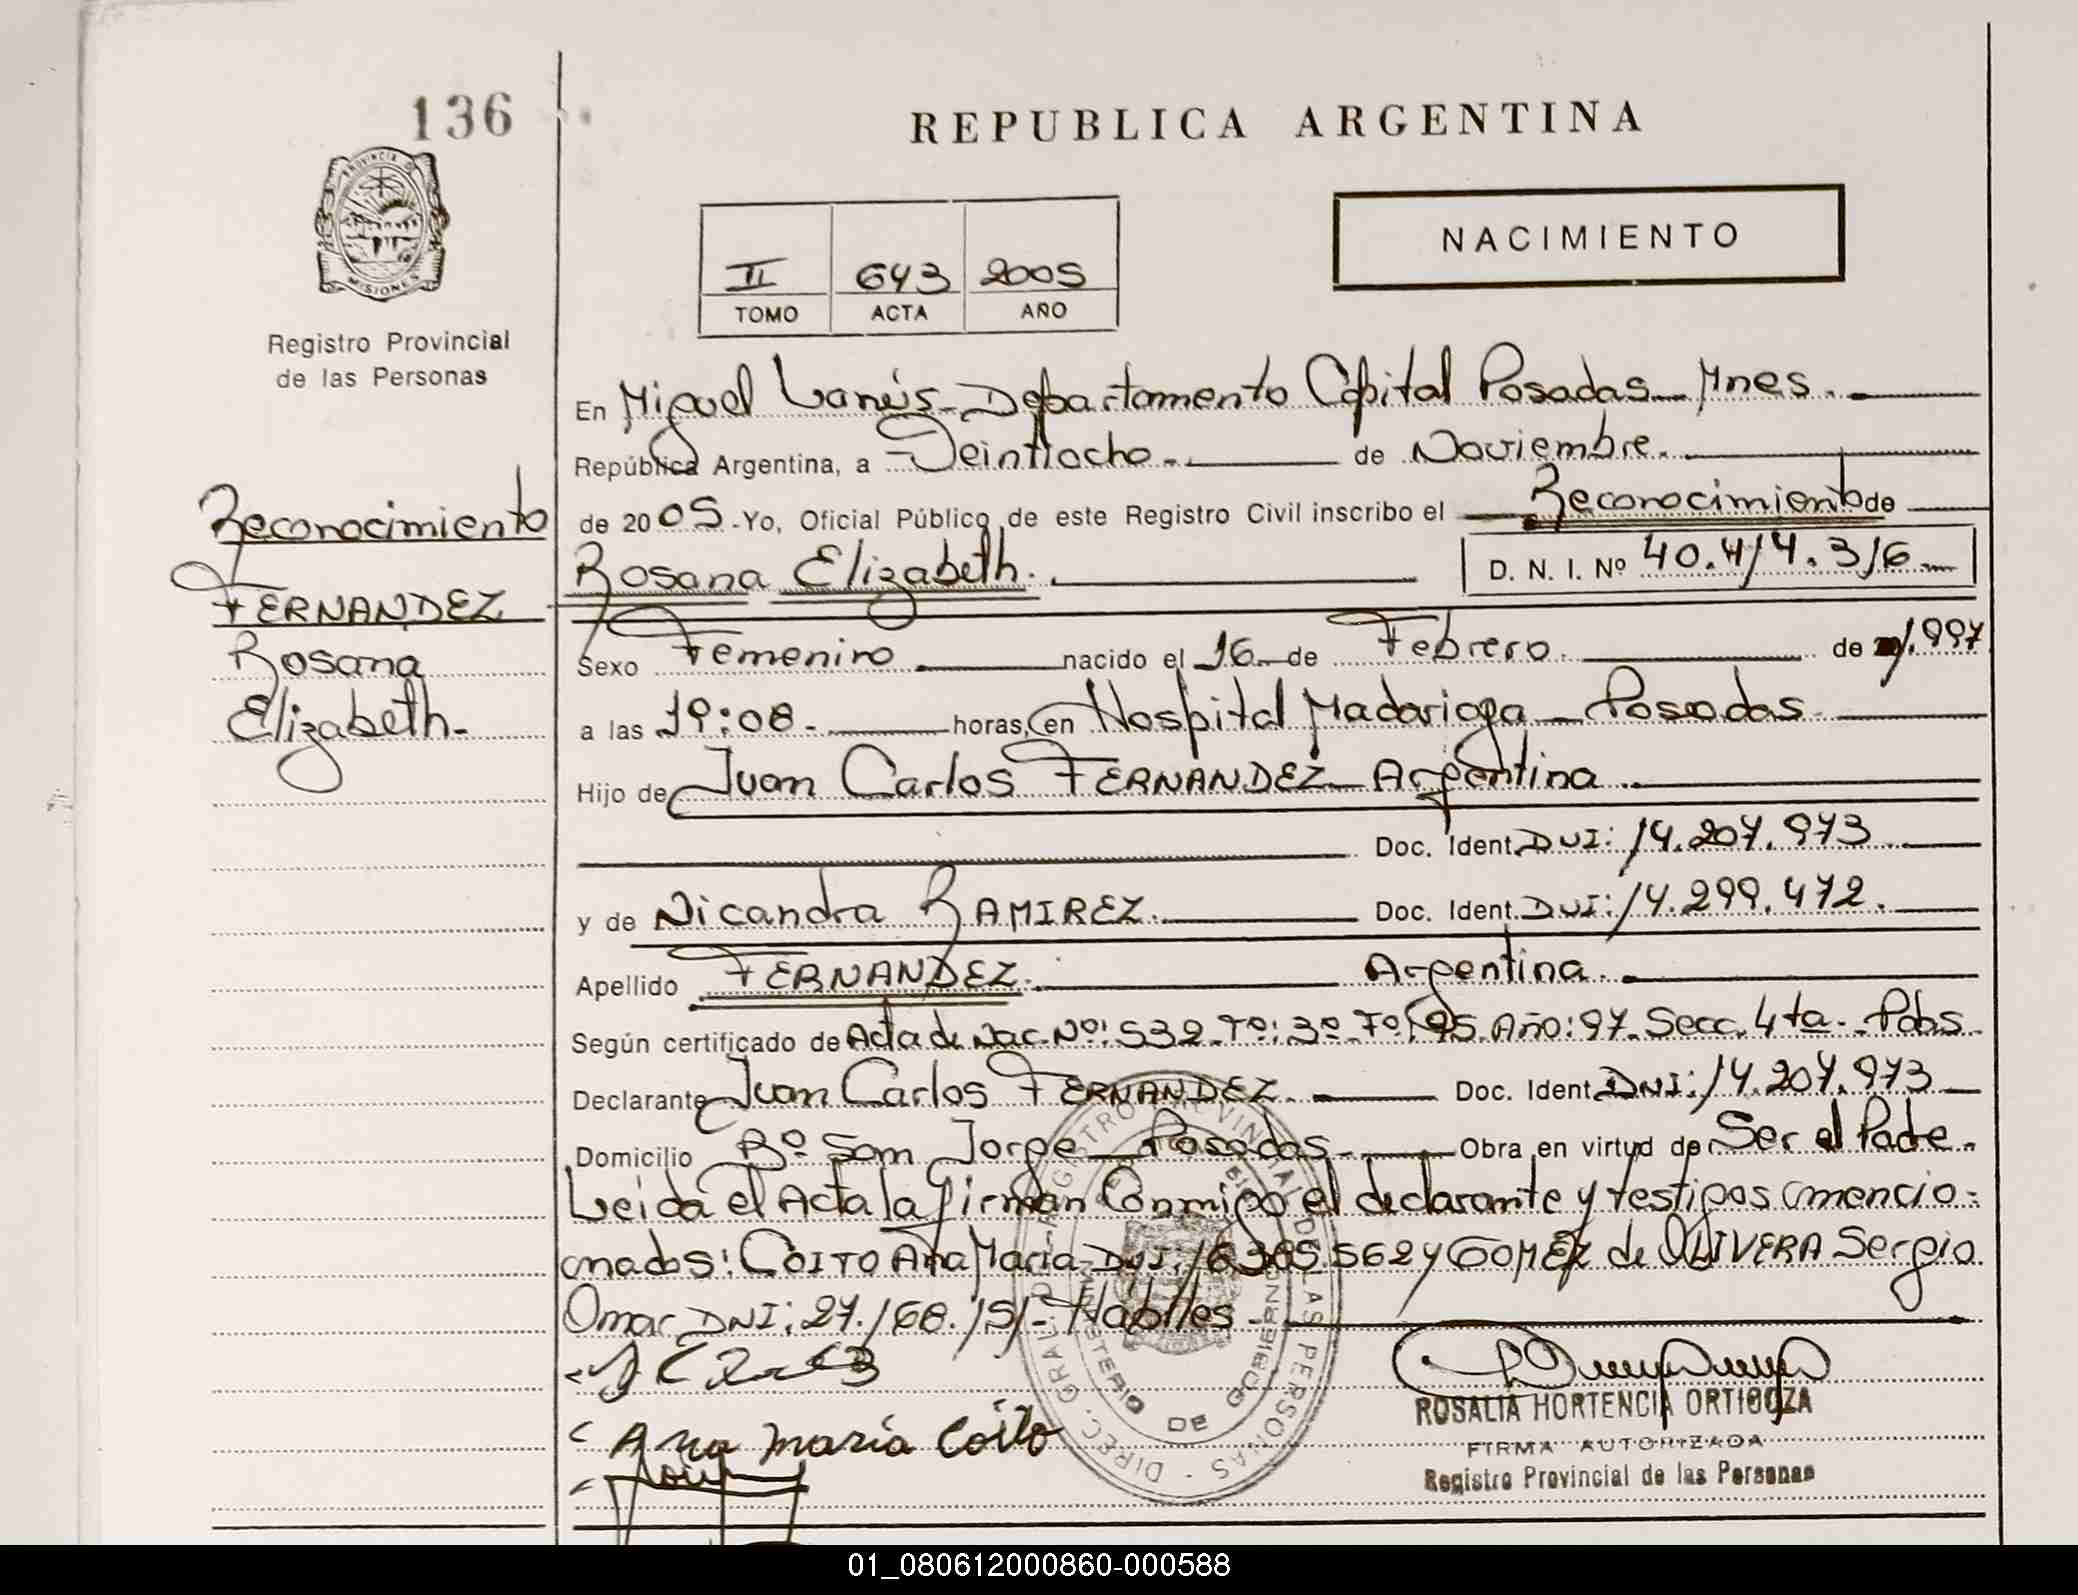 136
REPUBLICA ARGENTINA
PROVINCIA D
MISIONES
Registro Provincial
de las Personas
NACIMIENTO
II 643 2005
TOMO ACTA AÑO
En Miguel Lanús - Departamento Capital Posadas - Mnes.
República Argentina, a Veintiocho - de Noviembre.
de 2005 - Yo, Oficial Público de este Registro Civil inscribo el Reconocimiento de
Rosana Elizabeth. D. N. I. Nº 40.414.316
Sexo Femenino nacido el 16 de Febrero. de 1.997
a las 19:08 - horas, en Hospital Madariaga - Posadas
Hijo de Juan Carlos FERNANDEZ - Argentina
Doc. Ident. DNI: 14.207.973
y de Nicandra RAMIREZ. Doc. Ident. DNI: 14.299.472.
Apellido FERNANDEZ. Argentina.
Según certificado de Acta de Nac. Nº: 532 - Tº: 3º - Fº: 95. Año: 97 - Secc. 4ta - Pdas
Declarante Juan Carlos FERNANDEZ. Doc. Ident. DNI: 14.207.973
Domicilio Bº San Jorge - Posadas - Obra en virtud de Ser el Padre.
Leida el Acta la firman Conmigo el declarante y testigos mencio=
nados: COITO Ana Maria - DNI: 16.365.562 y GOMEZ de OLIVERA Sergio
Omar DNI: 27.168.151 - Habiles -
Ana maria Coito
ROSALIA HORTENCIA ORTIGOZA
FIRMA AUTORIZADA
Registro Provincial de las Personas
Reconocimiento
FERNANDEZ
Rosana
Elizabeth -
DIREC. GRAL. DEL REGISTRO PROVINCIAL DE LAS PERSONAS
MINISTERIO DE GOBIERNO
01_080612000860-000588